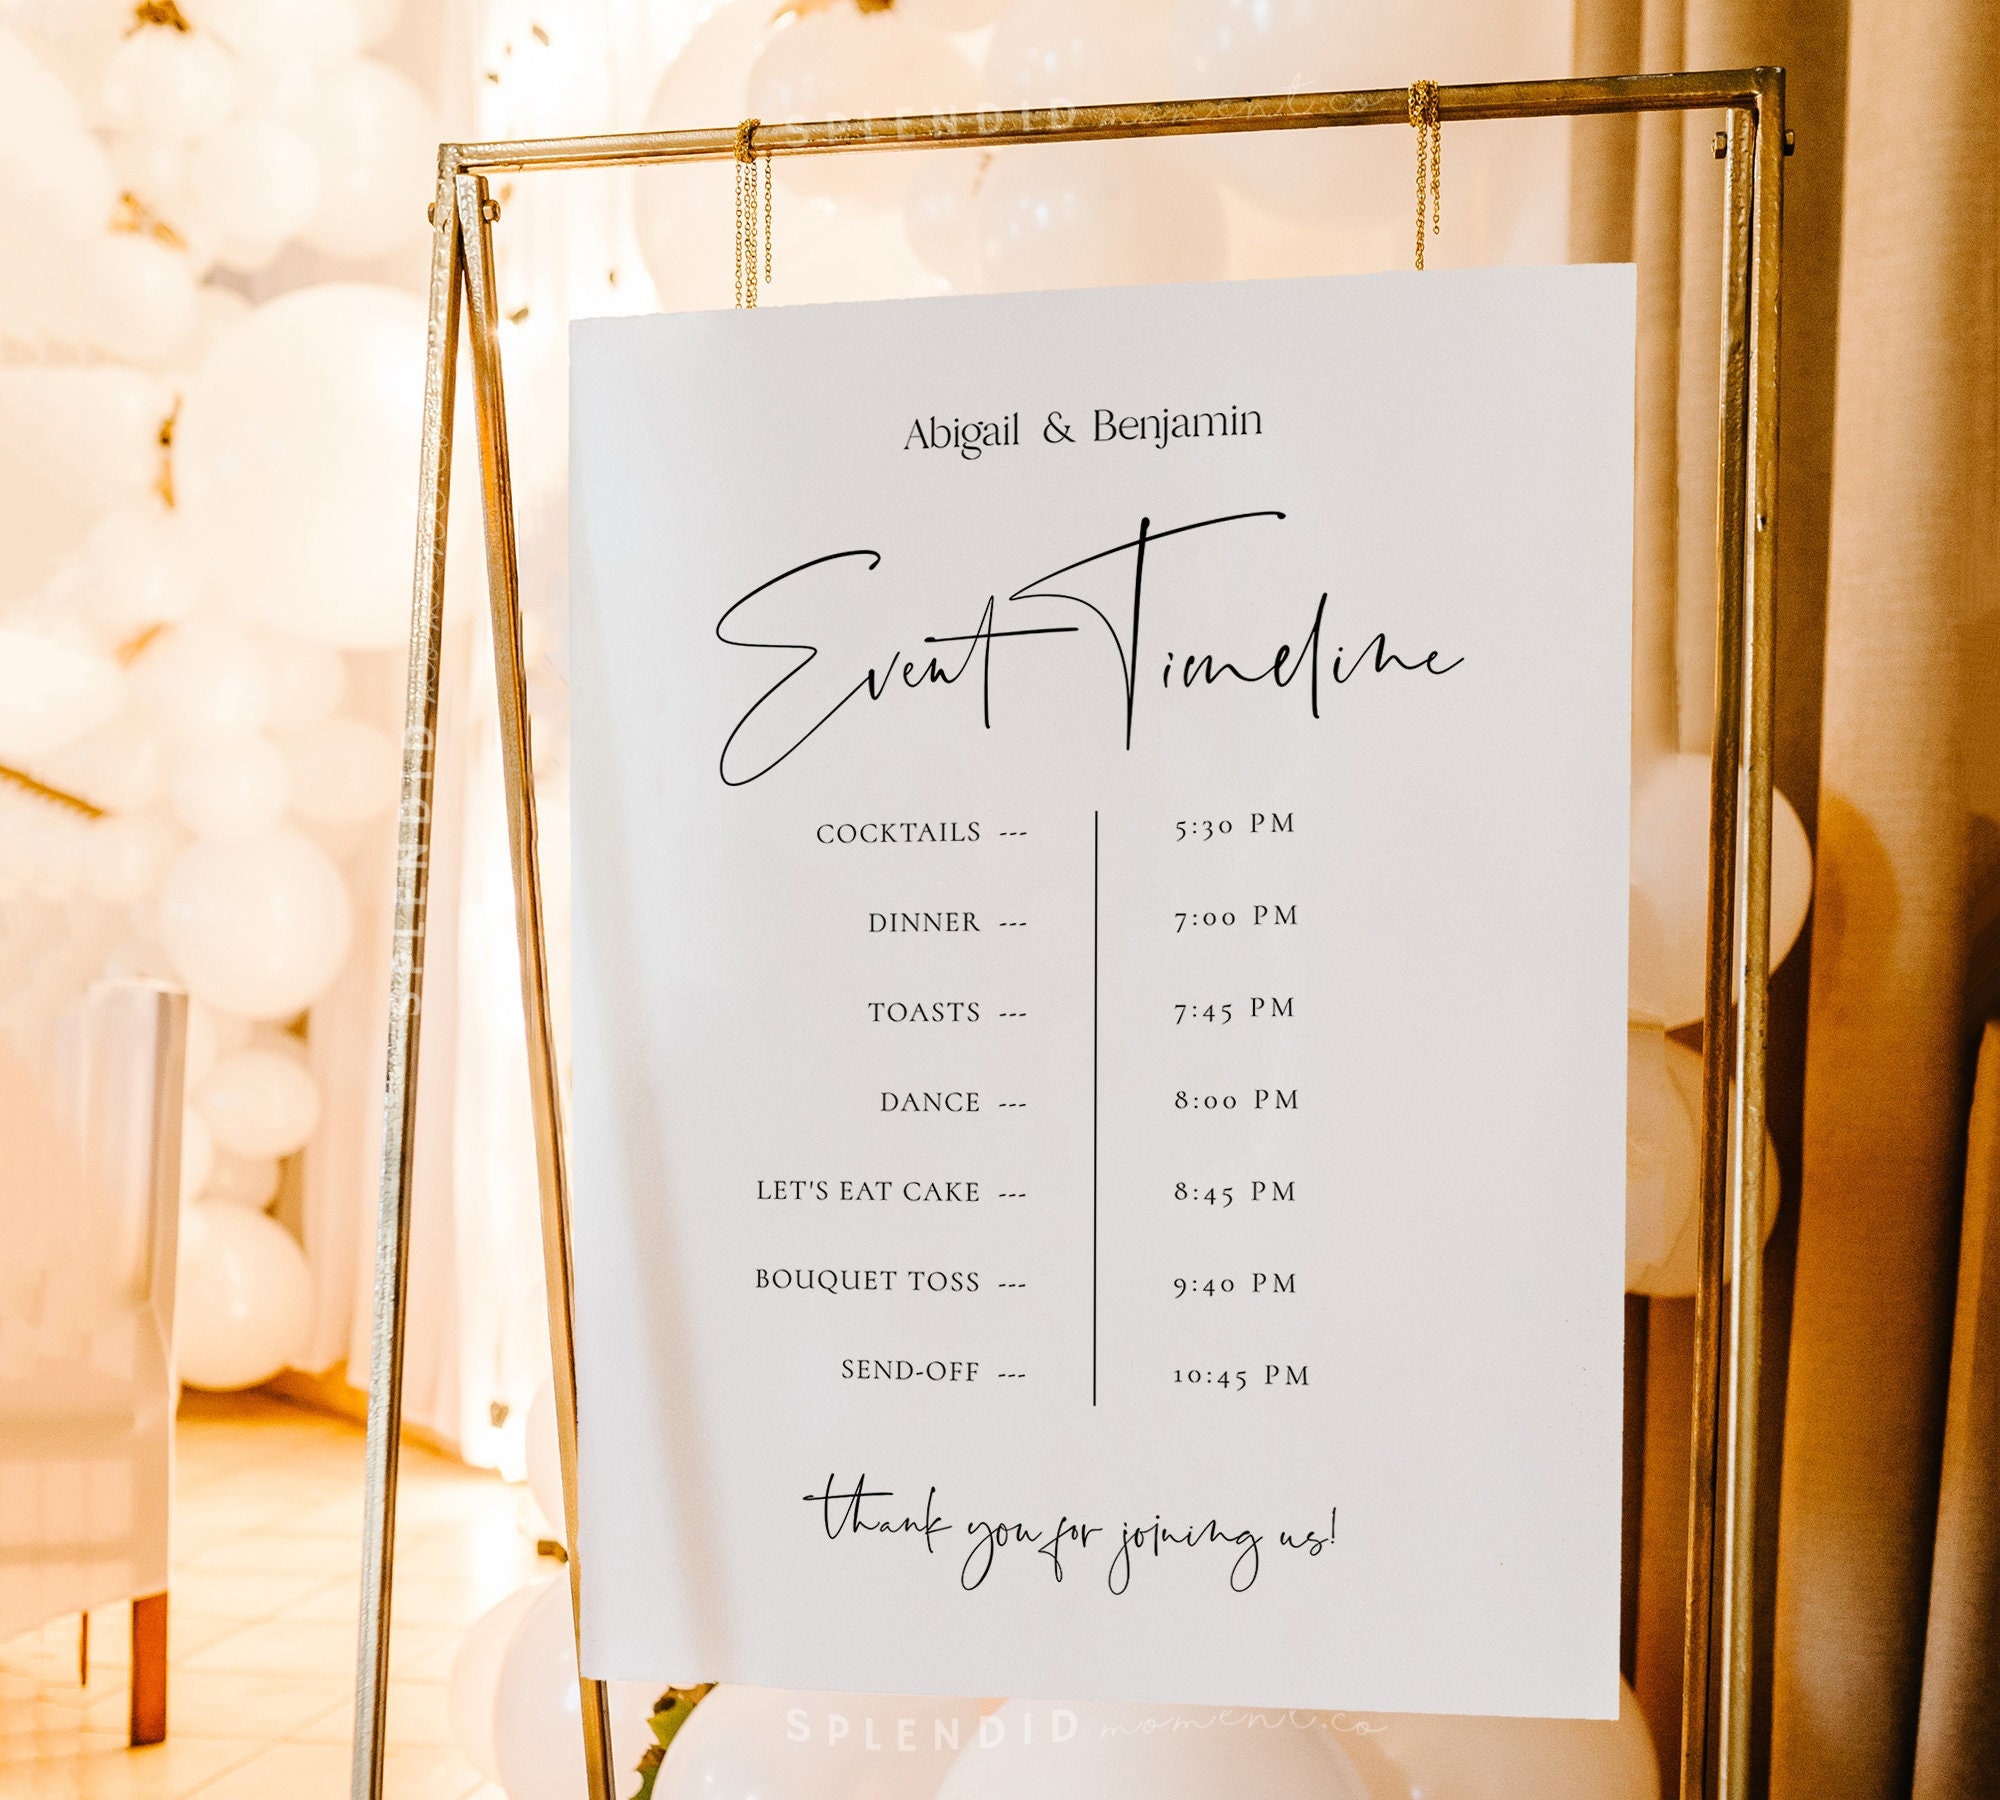 SPLENDID moment.co
Abigail & Benjamin
Event Timeline
COCKTAILS --- 5:30 PM
DINNER --- 7:00 PM
TOASTS --- 7:45 PM
DANCE --- 8:00 PM
LET'S EAT CAKE --- 8:45 PM
BOUQUET TOSS --- 9:40 PM
SEND-OFF --- 10:45 PM
thank you for joining us!
SPLENDID moment.co
SPLENDID moment.co